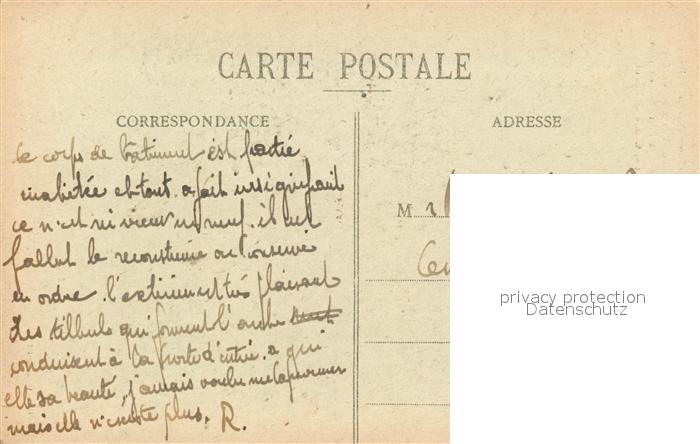 CARTE POSTALE
CORRESPONDANCE
ADRESSE
le corps de bâtiment est partie
inhabitée et tout a fait insignifiant
ce n'est ni vieux ni neuf. il eut
fallut le reconstruire ou conservé
en ordre. l'extérieur est très plaisant
Les tilleuls qui forment l'arche
conduisent à la porte d'entrée. a qui
elle sa beauté, j'amais voulu me la
mais elle n'existe plus. R.
M
privacy protection
Datenschutz